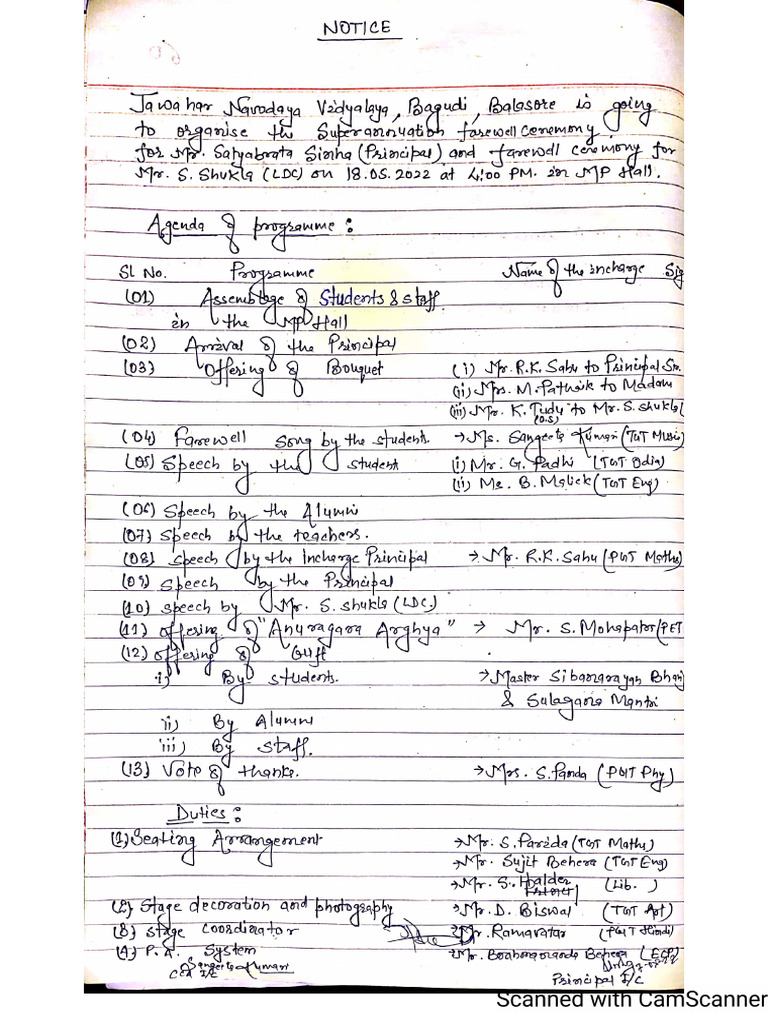 NOTICE
Jawahar Navodaya Vidyalaya, Bagudi, Balasore is going
to organise the Superannuation farewell ceremony
for Mr. Satyabrata Simha (Principal) and farewell ceremony for
Mr. S. Shukla (LDC) on 18.05.2022 at 4:00 PM. in MP Hall.
Agenda of programme :
Sl No. Programme Name of the incharge Sig
(01) Assemblage of Students & staff
in the MP Hall
(02) Arrival of the Principal
(03) Offering of Bouquet (i) Mr. R.K. Sahu to Principal Sir.
(ii) Mrs. M. Patnaik to Madam
(iii) Mr. K. Tudu to Mr. S. shukla(
(O.S)
(04) Farewell song by the student. → Ms. Sangeeta Kumari (TGT Music)
(05) Speech by the student (i) Mr. G. Padhi (TGT Odia)
(ii) Ms. B. Malick (TGT Eng)
(06) Speech by the Alumni
(07) Speech by the teachers.
(08) speech by the incharge Principal → Mr. R.K. Sahu (PGT Maths)
(09) Speech by the Principal
(10) speech by Mr. S. shukla (LDC.)
(11) offering of "Anuragara Arghya" → Mr. S. Mohapatra (PET
(12) offering of Gift
i) By students. → Master Sibanarayan Bhanj
& Sulagana Mantri
ii) By Alumni
iii) By staff.
(13) Vote of thanks. → Mrs. S. Panda (PGT Phy)
Duties :
(1) Seating Arrangement → Mr. S. Parida (TGT Maths)
→ Mr. Sujit Behera (TGT Eng)
→ Mr. S. Halder (Lib. )
(2) Stage decoration and photography → Mr. D. Biswal (TGT Art)
(3) stage coordinator → Mr. Ramavatar (PGT Hindi)
(4) P.A. System → Mr. Brahmananda Behera
Sangeeta Kumari
CCA I/C
Principal I/C
Scanned with CamScanner